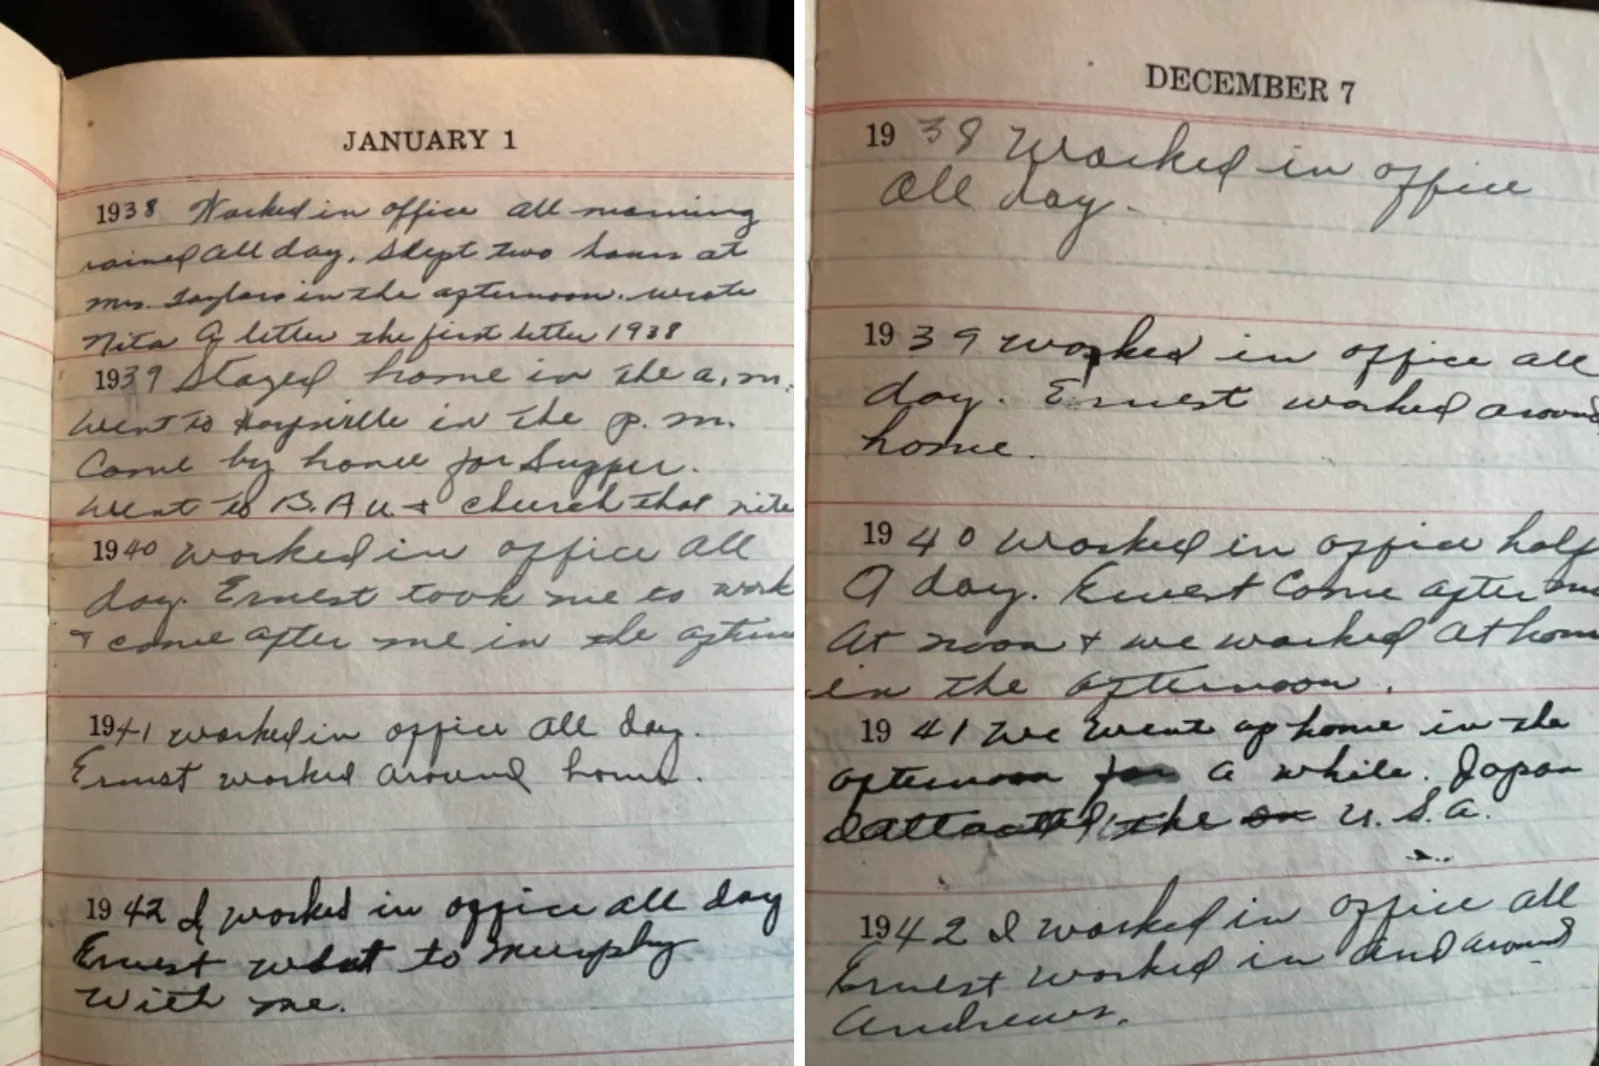 JANUARY 1
1938 Worked in office all morning
rained all day, slept two hours at
Mrs. Taylors in the afternoon. wrote
Nita a letter the first letter 1938
1939 Stayed home in the a.m.
Went to Haysville in the p.m.
Come by home for supper.
Went to B.A.U. & church that nite
1940 worked in office all
day. Ernest took me to work
& come after me in the
1941 worked in office all day.
Ernest worked around home.
1942 I worked in office all day
Ernest went to Murphy
with me.
DECEMBER 7
1938 Worked in office
all day.
1939 worked in office all
day. Ernest worked around
home.
1940 Worked in office half
a day. Ernest come after me
at noon & we worked at home
in the afternoon.
1941 We went up home in the
afternoon for a while. Japan
attacted the U.S.A.
1942 I worked in office all
Ernest worked in and around
Andrews.